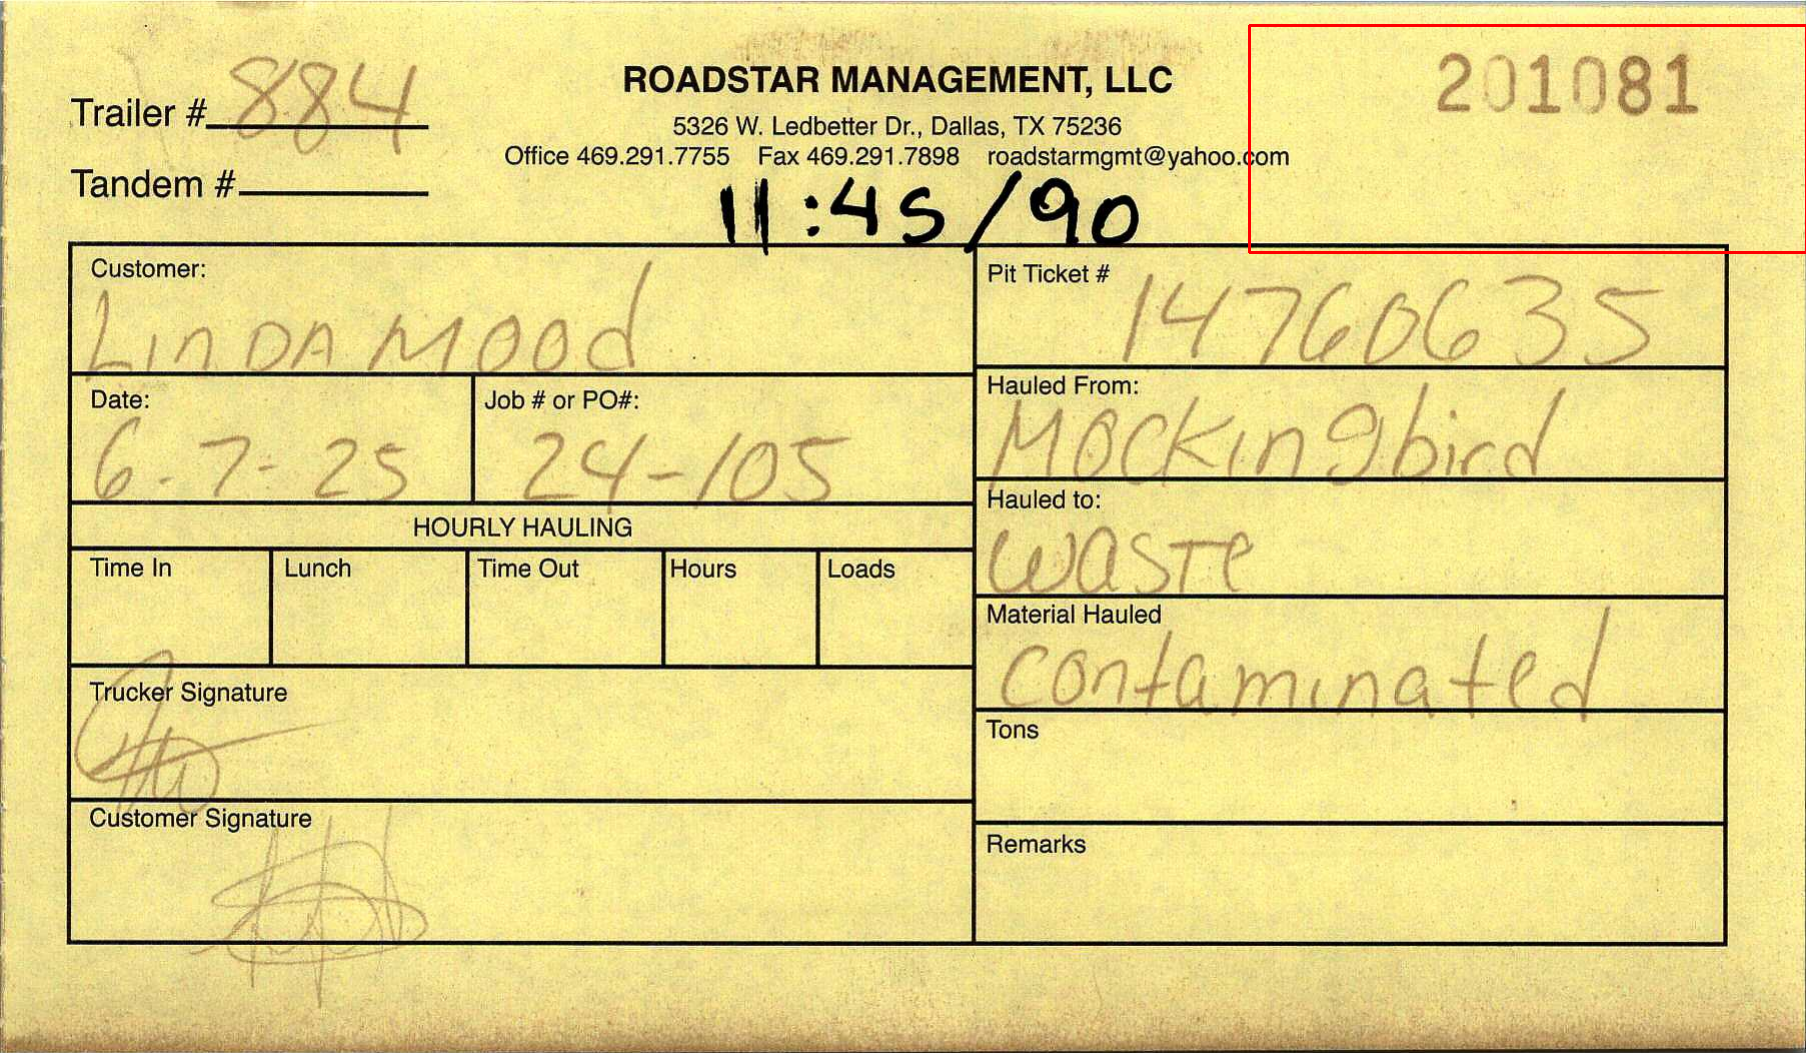 Trailer # 884
ROADSTAR MANAGEMENT, LLC
201081
5326 W. Ledbetter Dr., Dallas, TX 75236
Office 469.291.7755 Fax 469.291.7898 roadstarmgmt@yahoo.com
Tandem #
11:45/90
Customer:
LinDA MOOd
Pit Ticket #
14760635
Date:
6-7-25
Job # or PO#:
24-105
Hauled From:
Mockingbird
HOURLY HAULING
Hauled to:
waste
Time In
Lunch
Time Out
Hours
Loads
Material Hauled
contaminated
Trucker Signature
Tons
Customer Signature
Remarks